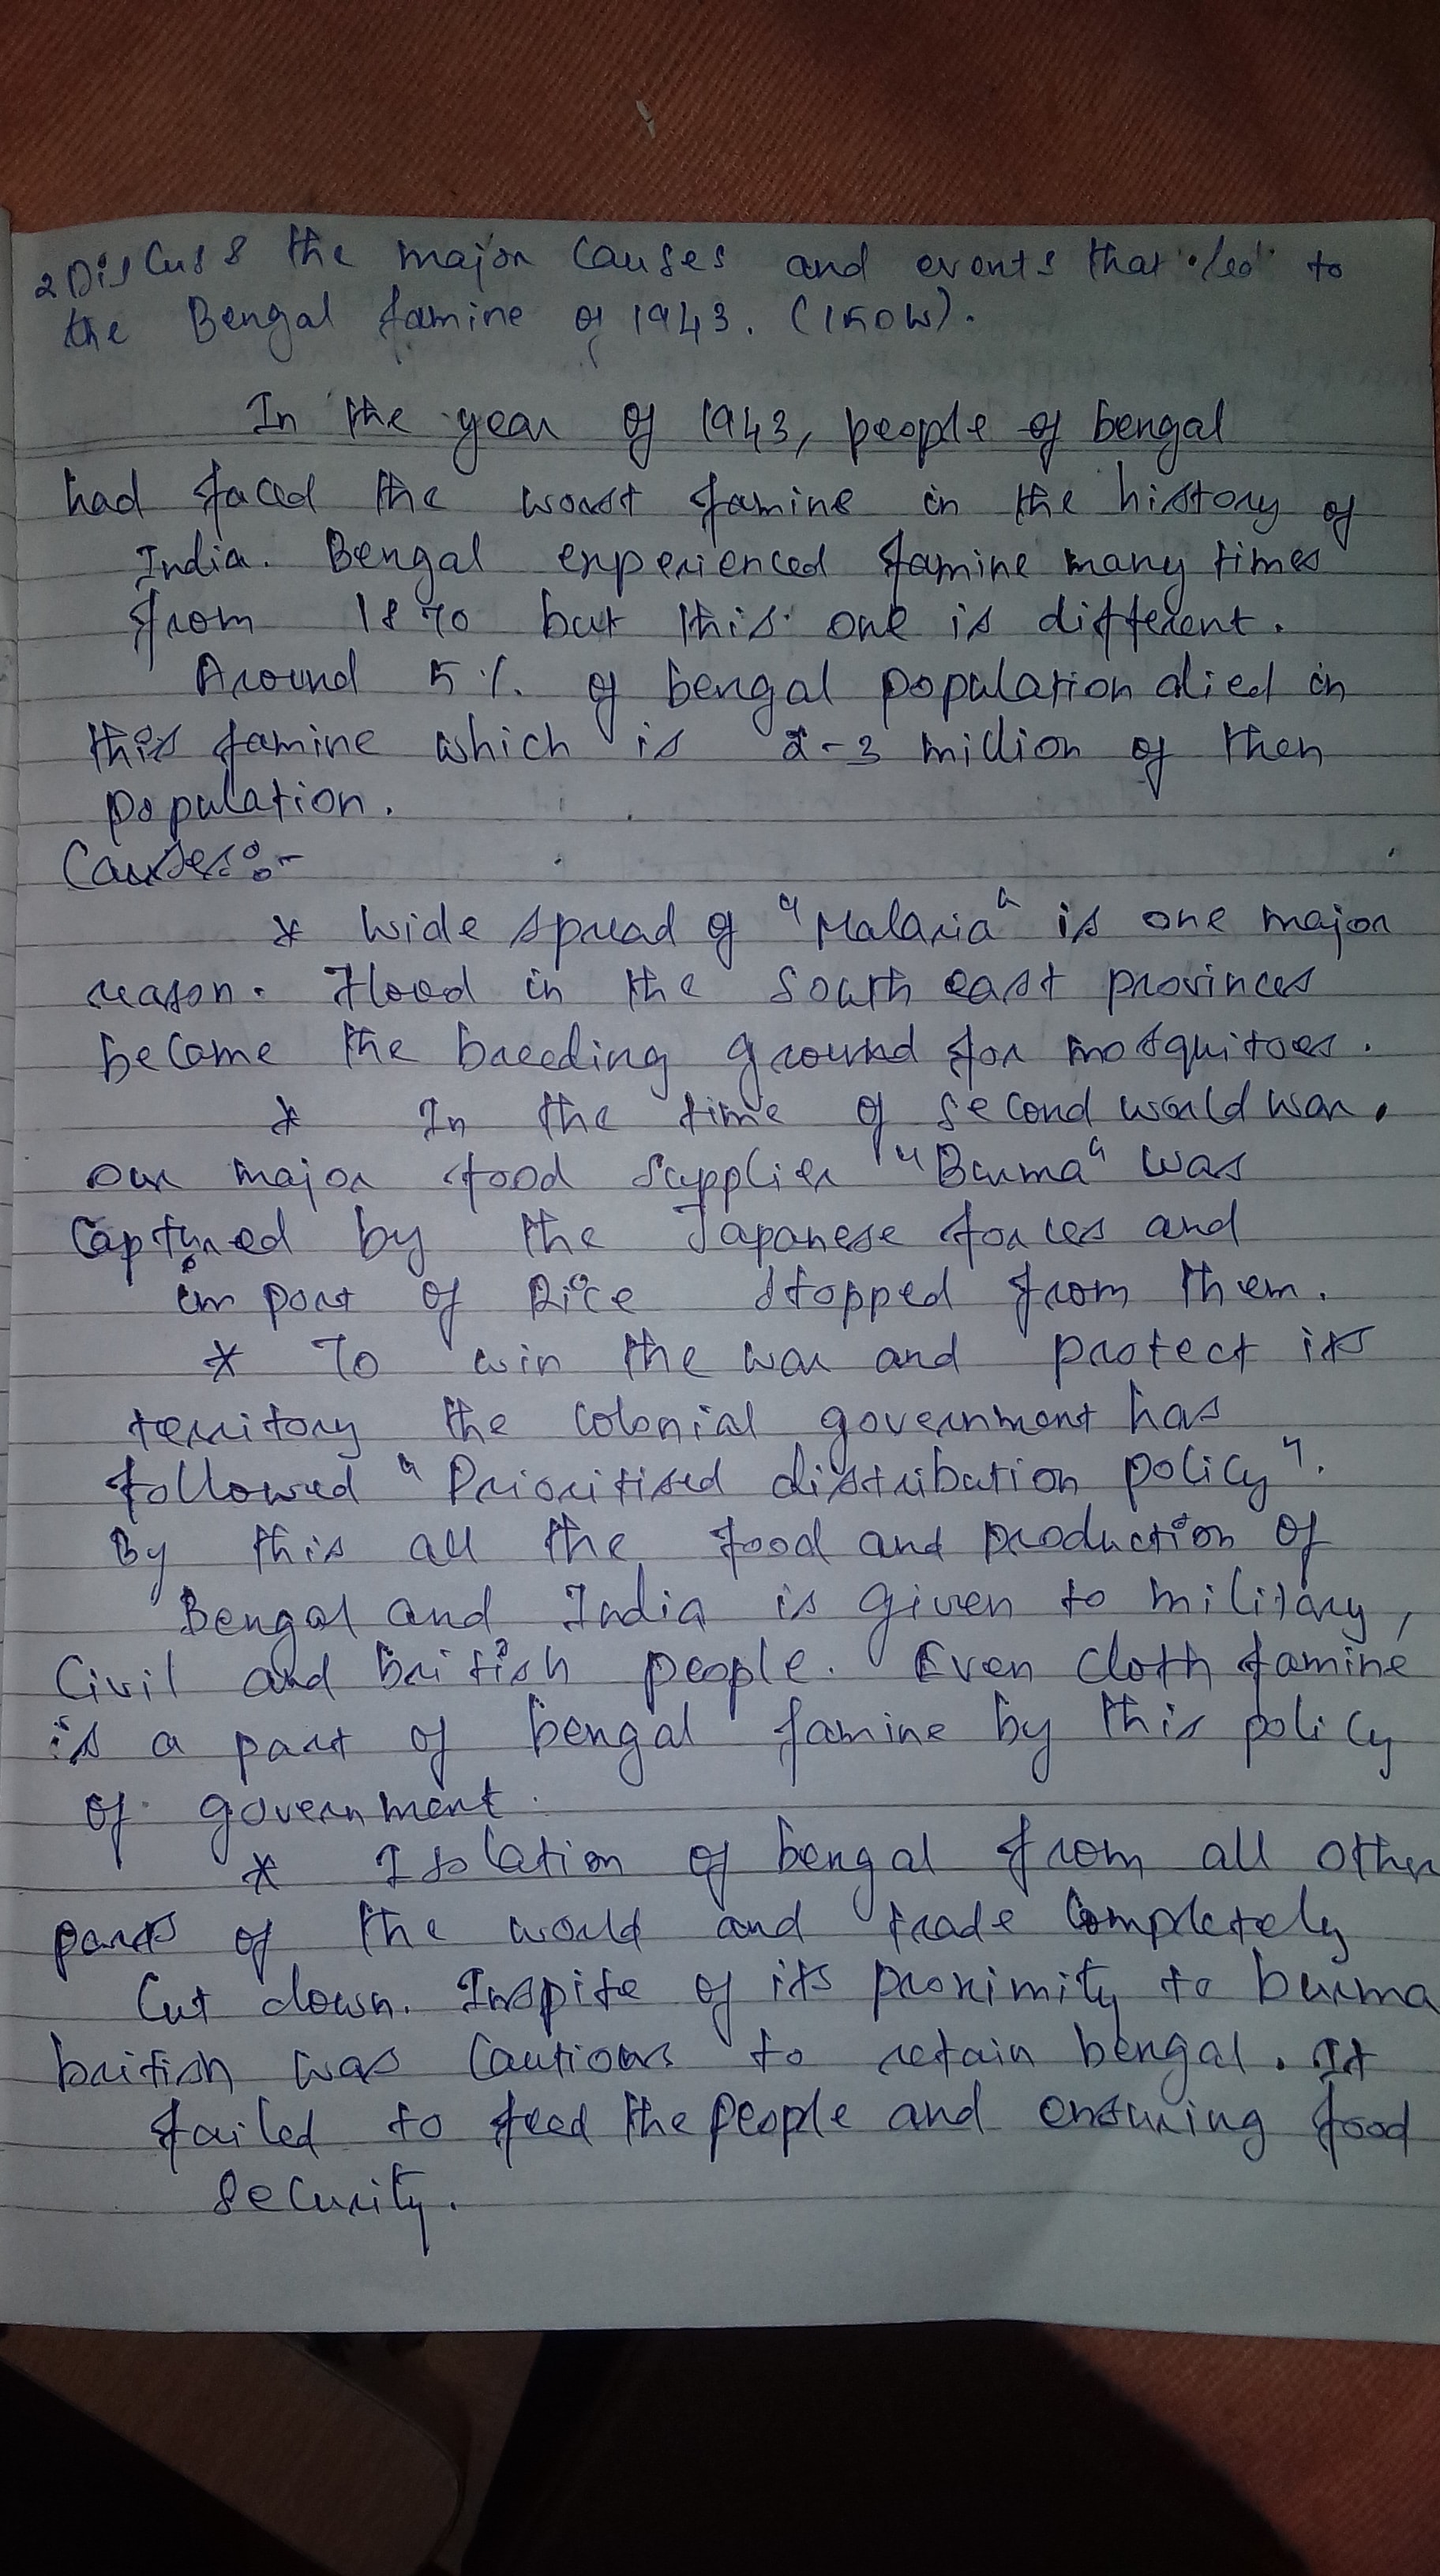 2 Discuss the major causes and events that led to
the Bengal famine of 1943. (150W).
In the year of 1943, people of bengal
had faced the worst famine in the history of
India. Bengal experienced famine many times
from 1870 but this one is different.
Around 5%. of bengal population died in
this famine which is 2-3 million of then
population.
Causes:-
* Wide spread of "Malaria" is one major
reason. Flood in the South east provinces
become the breeding ground for mosquitoes.
* In the time of second world war,
our major food supplier "Burma" was
Captured by the Japanese forces and
import of Rice stopped from them.
* To win the war and protect its
territory the colonial government has
followed "Prioritised distribution policy".
By this all the food and production of
Bengal and India is given to military,
Civil and british people. Even cloth famine
is a part of bengal famine by this policy
of government.
* Isolation of bengal from all other
parts of the world and trade completely
cut down. Inspite of its proximity to burma
british was cautious to retain bengal. It
failed to feed the people and ensuring food
security.